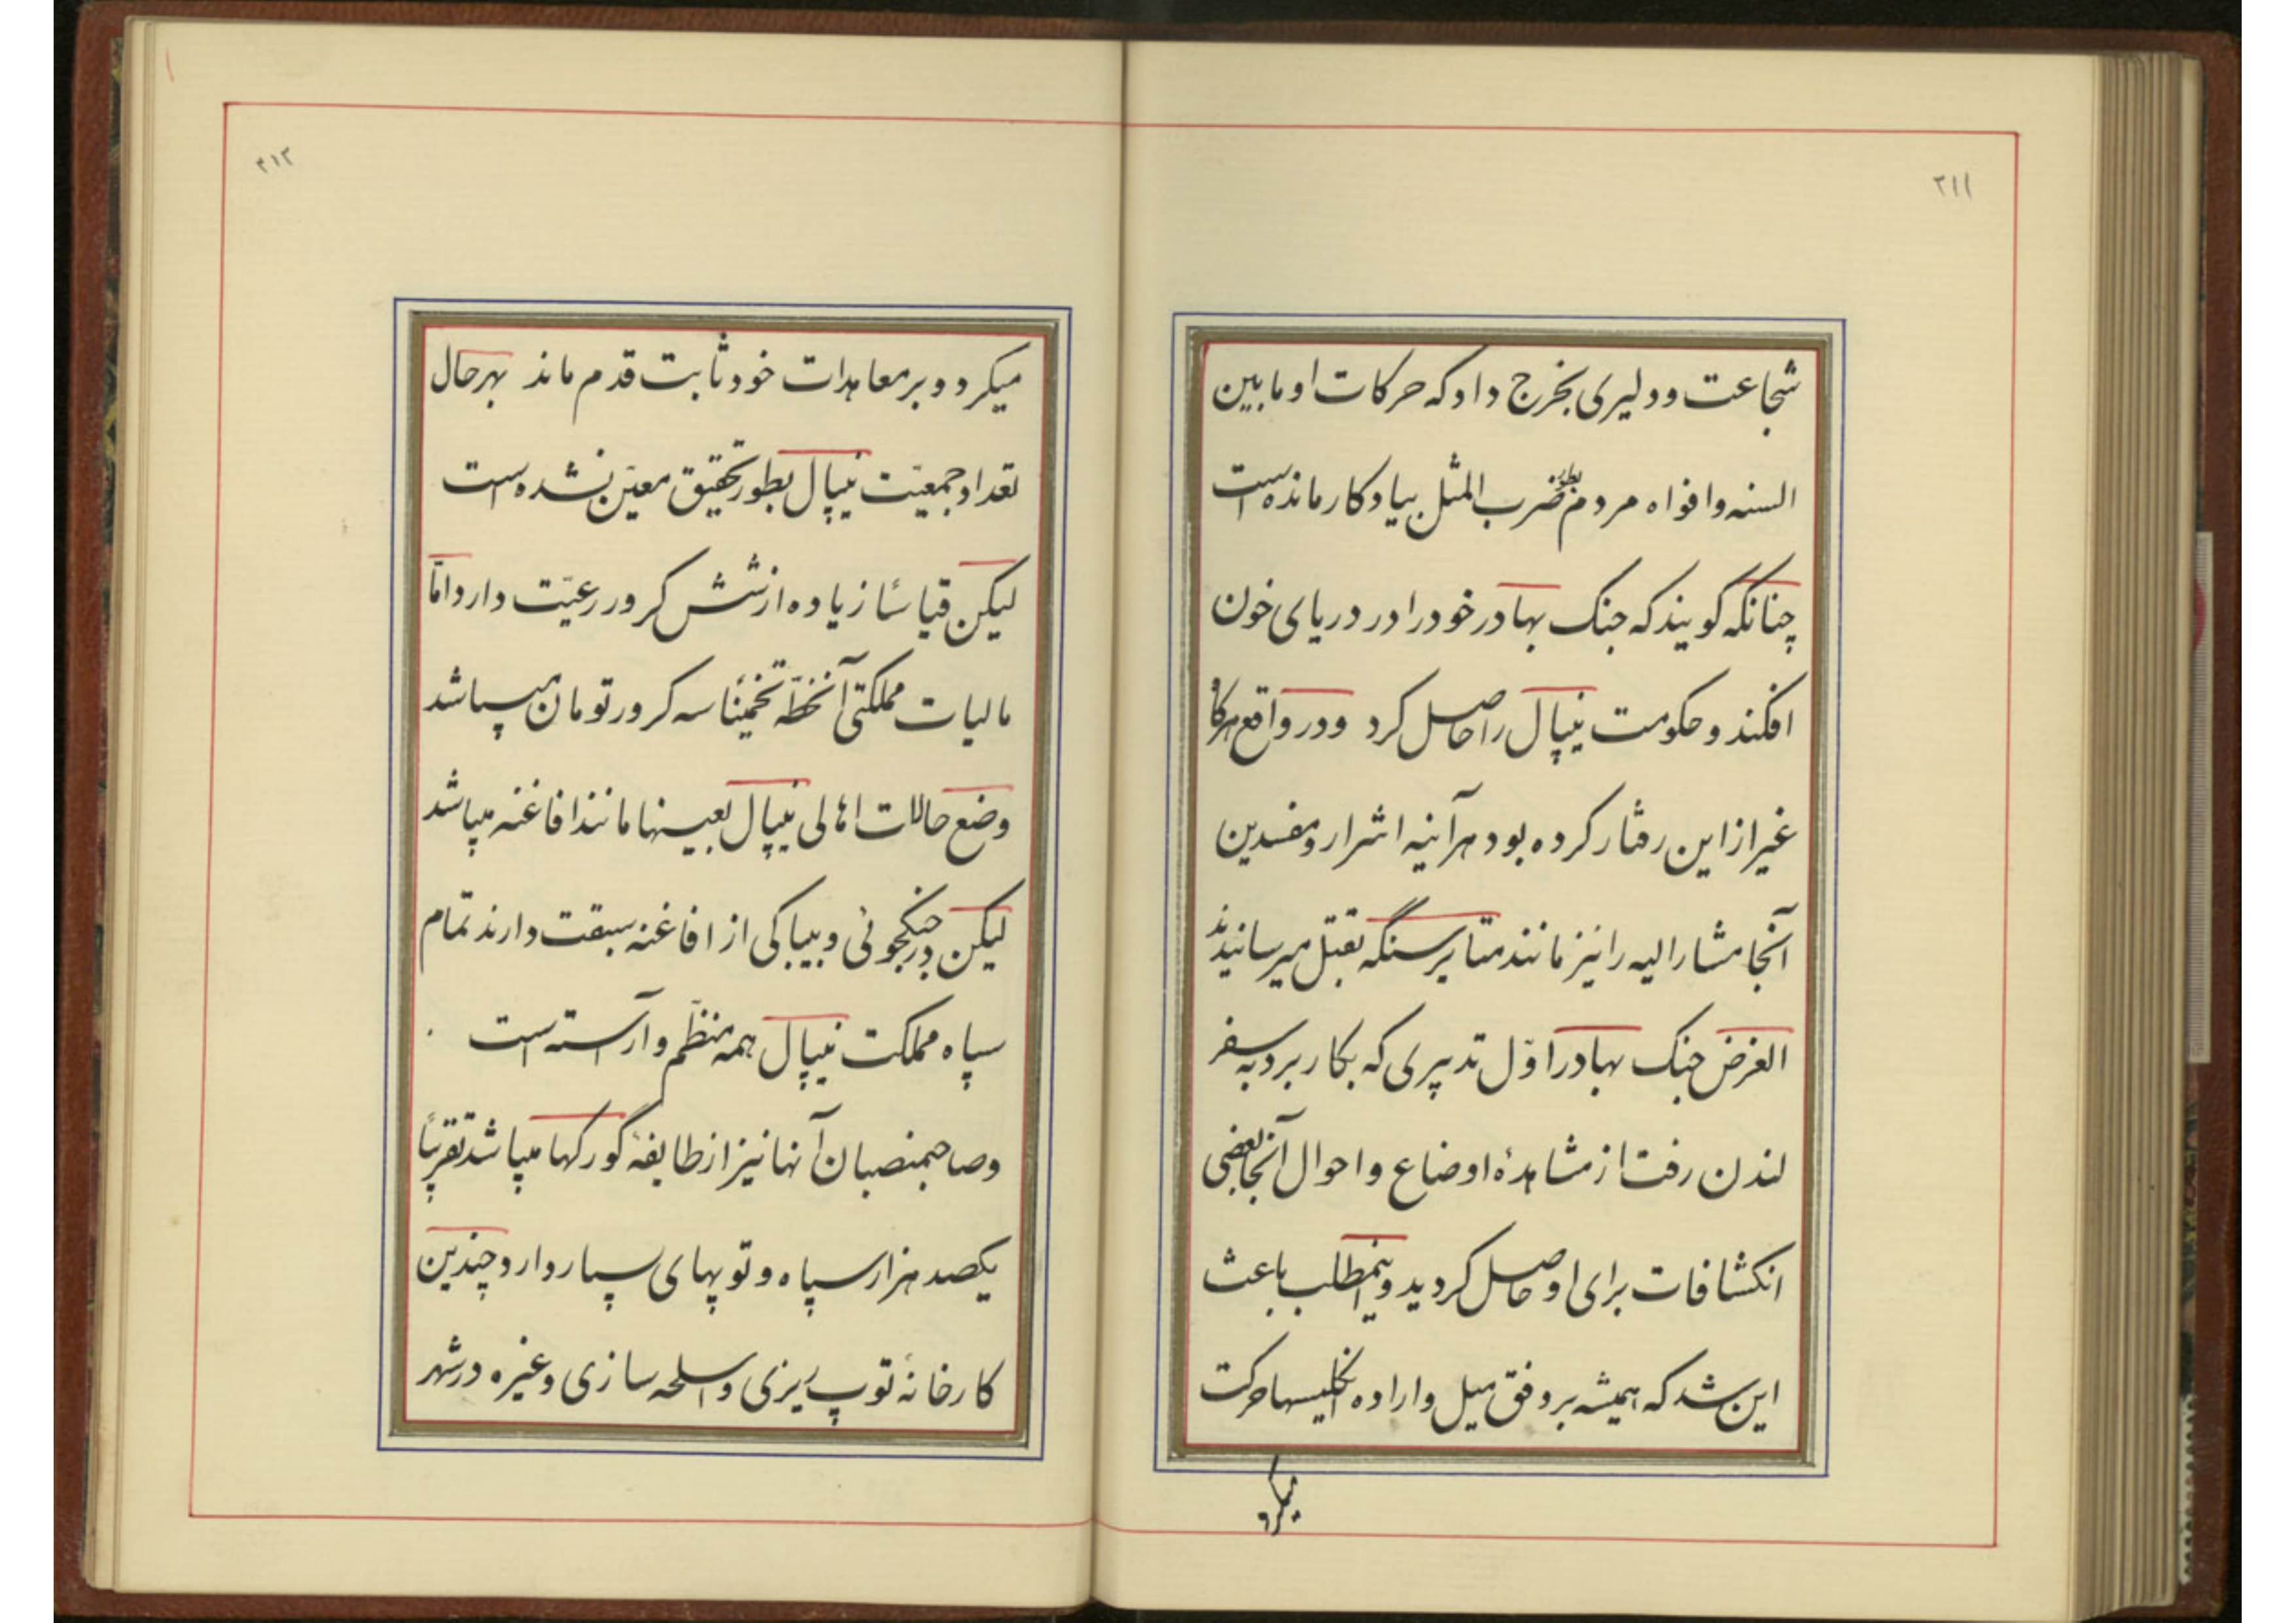 ۲۱۱
شجاعت و دلیری بخرج داد که حرکات او مابین
السنه و افواه مردم بطور ضرب المثل بیادکار مانده است
چنانکه کویند که جنک بهادر خود را در دریای خون
افکند و حکومت نیپال را حاصل کرد و در واقع هرکا
غیر از این رفتار کرده بود هرآینه اشرار و مفسدین
آنجا مشارالیه را نیز مانند متابرسنگه بقتل میرسانیدند
الغرض جنک بهادر اوّل تدبیری که بکار برد به سفر
لندن رفت از مشاهدهٔ اوضاع و احوال آنجا بعضی
انکشافات برای او حاصل کردید و اینمطلب باعث
این شد که همیشه بر وفق میل و اراده انکلیسها حرکت
میکرد
۲۱۲
میکرد و بر معاهدات خود ثابت قدم ماند بهرحال
تعداد جمعیّت نیپال بطور تحقیق معیّن نشده است
لیکن قیاسًا زیاده از شش کرور رعیّت دارد امّا
مالیات مملکتی آنخطّه تخمینًا سه کرور تومان میباشد
وضع حالات اهالی نیپال بعینها مانند افاغنه میباشد
لیکن در جنکجوئی و بیباکی از افاغنه سبقت دارند تمام
سپاه مملکت نیپال همه منظّم و آراسته است
و صاحبمنصبان آنها نیز از طایفهٔ گورکها میباشد تقریبًا
یکصد هزار سپاه و توپهای بسیار دارد و چندین
کارخانهٔ توپ ریزی و اسلحه سازی و غیره در شهر